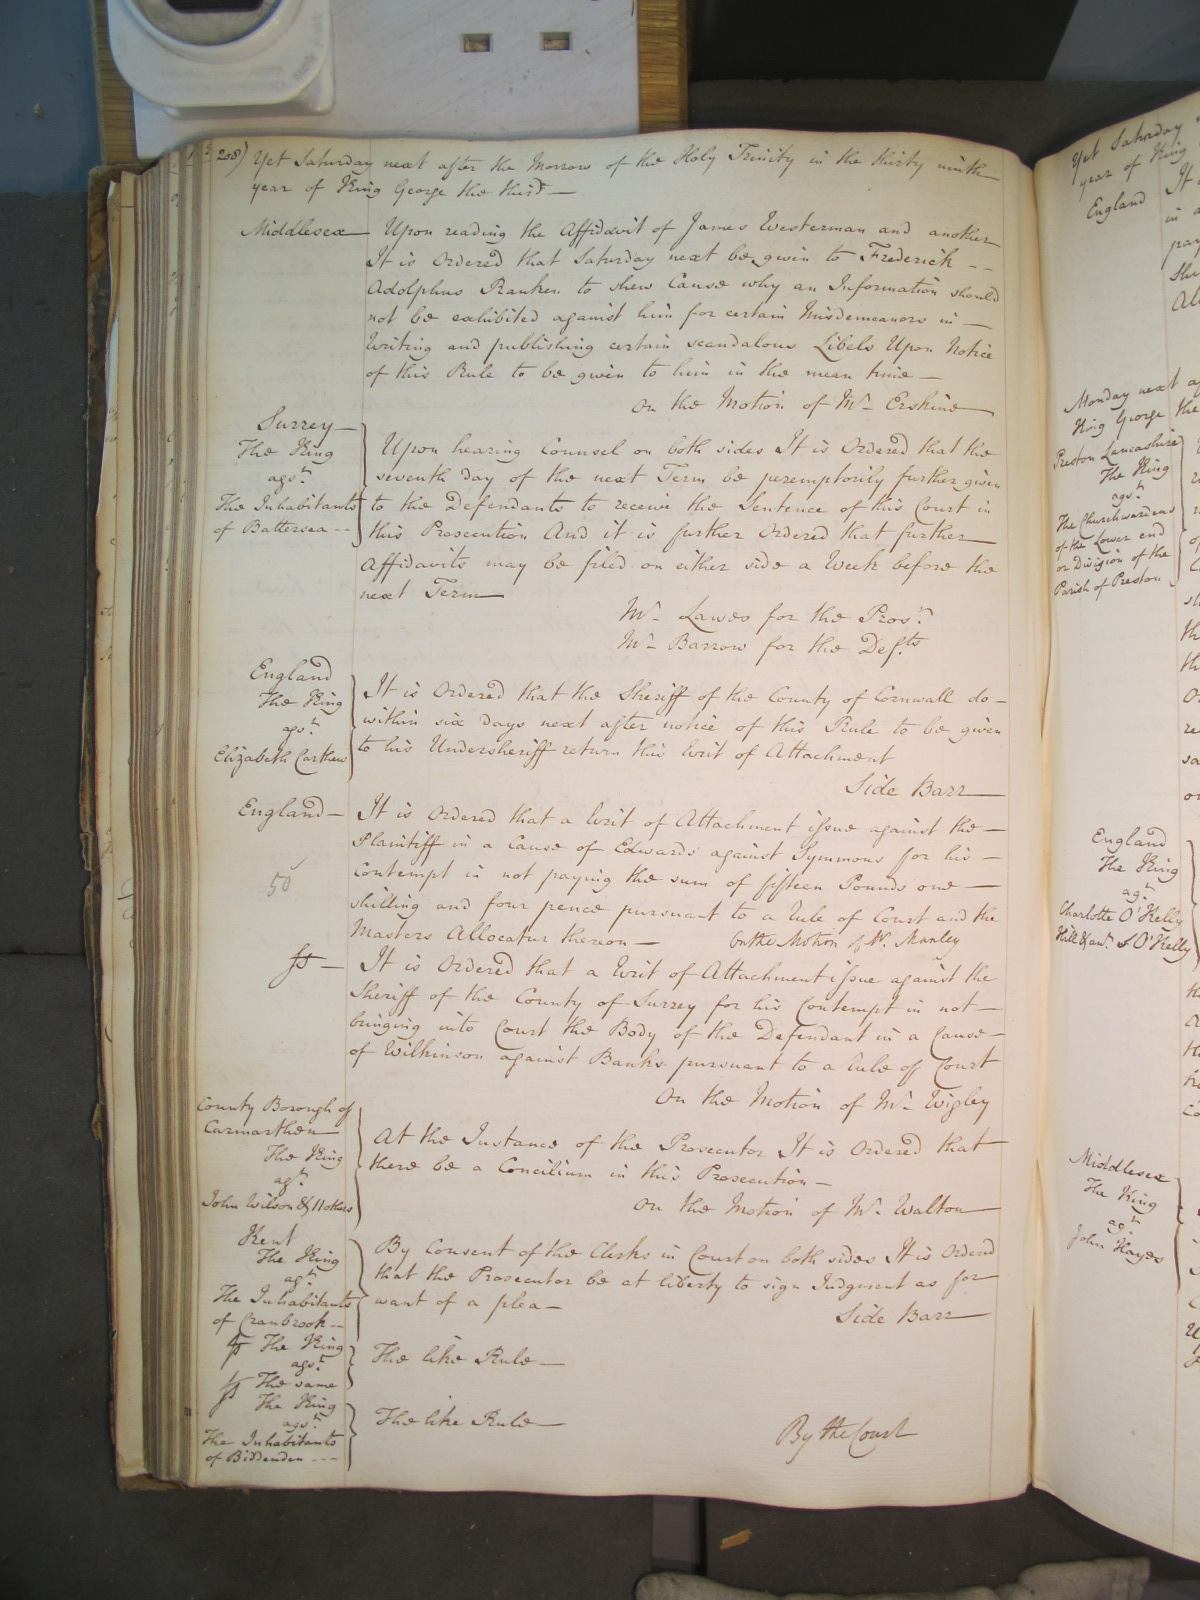 208) Yet Saturday next after the Morrow of the Holy Trinity in the thirty ninth
year of King George the third —
Middlesex — Upon reading the Affidavit of James Westerman and another
It is Ordered that Saturday next be given to Frederick --
Adolphus Ranken to shew Cause why an Information should
not be exhibited against him for certain Misdemeanors in —
Writing and publishing certain scandalous Libels Upon Notice
of this Rule to be given to him in the mean time —
On the Motion of Mr. Erskine
Surrey —
The King
agst.
The Inhabitants
of Battersea --
Upon hearing Counsel on both sides It is Ordered that the
seventh day of the next Term be peremptorily further given
to the Defendants to receive the Sentence of this Court in
this Prosecution And it is further Ordered that further
Affidavits may be filed on either side a Week before the
next Term
Mr. Lawes for the Prosr.
Mr. Barrow for the Defts.
England
The King
agst.
Elizabeth Carthew
It is Ordered that the Sheriff of the County of Cornwall do —
within six days next after notice of this Rule to be given
to his Undersheriff return this Writ of Attachment
Side Barr
England — It is Ordered that a Writ of Attachment issue against the —
Plaintiff in a Cause of Edwards against Symmons for his —
50
Contempt in not paying the sum of fifteen Pounds one —
shilling and four pence pursuant to a Rule of Court and the
Masters Allocatur thereon — On the Motion of Mr. Manley
ss — It is Ordered that a Writ of Attachment issue against the
Sheriff of the County of Surrey for his Contempt in not —
bringing into Court the Body of the Defendant in a Cause —
of Wilkinson against Banks pursuant to a Rule of Court
On the Motion of Mr. Wigley
County Borough of
Carmarthen
The King
agst.
John Wilson & 11 others
At the Instance of the Prosecutor It is Ordered that
there be a Concilium in this Prosecution —
On the Motion of Mr. Walton
Kent
The King
agst.
The Inhabitants
of Cranbrook --
By Consent of the Clerks in Court on both sides It is Ordered
that the Prosecutor be at liberty to sign Judgment as for
want of a plea —
Side Barr
ss The King
agst.
The same
The like Rule —
ss The King
agst.
The Inhabitants
of Biddenden ---
The like Rule —
By the Court
Yet Saturday
year of King
England It
in a
pay
She
Monday next af
King George the
Preston Lancashire
The King
agst.
The Churchwardens
of the Lower end
or Division of the
Parish of Preston
England
The King
agt.
Charlotte O'Kelly
O'Kelly
Middlesex
The King
agt.
John Hayes